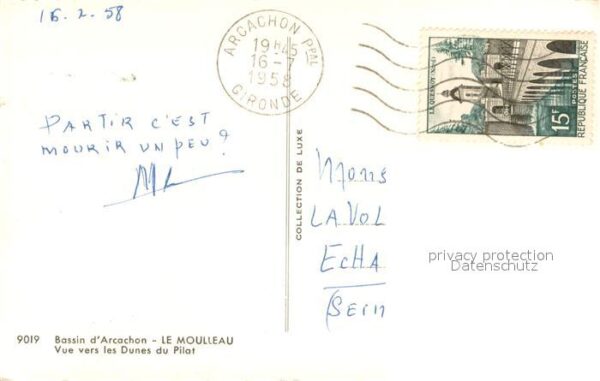 16.2.58
ARCACHON PPAL
19H45
16-7
1958
GIRONDE
LE QUESNOY (Nord)
15F
POSTES
REPUBLIQUE FRANÇAISE
PARTIR C'EST
MOURIR UN PEU?
COLLECTION DE LUXE
Mons
LAVOL
ECHA
(Sein
privacy protection
Datenschutz
9019 Bassin d'Arcachon - LE MOULLEAU
Vue vers les Dunes du Pilat